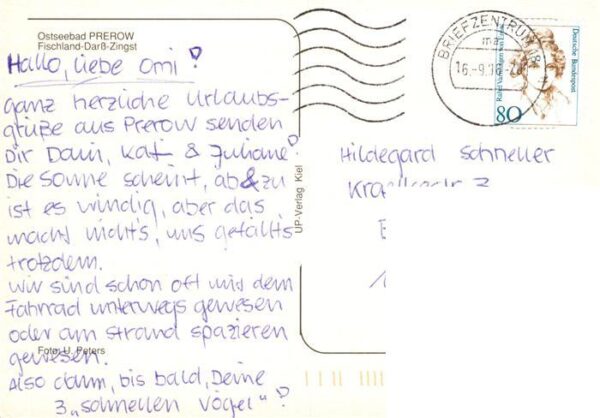 Ostseebad PREROW
Fischland-Darß-Zingst
Hallo, liebe Omi!
ganz herzliche Urlaubs-
grüße aus Prerow senden
Dir Dani, Kati & Juliane!
Die Sonne scheint, ab & zu
ist es windig, aber das
macht nichts, uns gefällt's
trotzdem.
Wir sind schon oft mit dem
Fahrrad unterwegs gewesen
oder am Strand spazieren
gewesen.
Foto: U. Peters
Also dann, bis bald, Deine
3 „schnellen Vögel“!
UP-Verlag Kiel
BRIEFZENTRUM 18
ma
Deutsche Bundespost
80
Hildegard Schneller